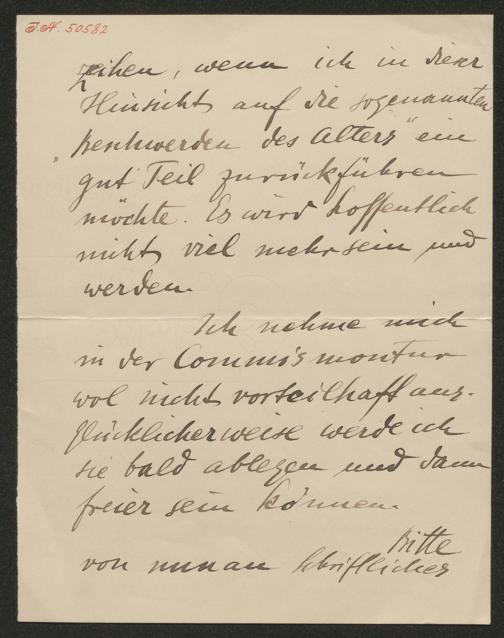 J.N. 50582
zeihen, wenn ich in dieser
Hinsicht auf die sogenannten
„Beschwerden des Alters" ein
gut Teil zurückführen
möchte. Es wird hoffentlich
nicht viel mehr sein und
werden.
Ich nehme mich
in der Commismontur
wol nicht vorteilhaft aus.
glücklicherweise werde ich
sie bald ablegen und dann
freier sein können.
Bitte
von nun an schriftliches